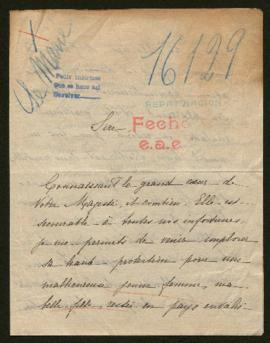 16129
Le Mans
Pedir informes
REPATRIACION
Sire,
Fecho
e.a.e
Connaissant le grand cœur de
Votre Majesté, et combien Elle est
secourable à toutes nos infortunes,
je me permets de venir implorer
sa haute protection pour une
malheureuse jeune femme, ma
belle fille, restée en pays envahi.